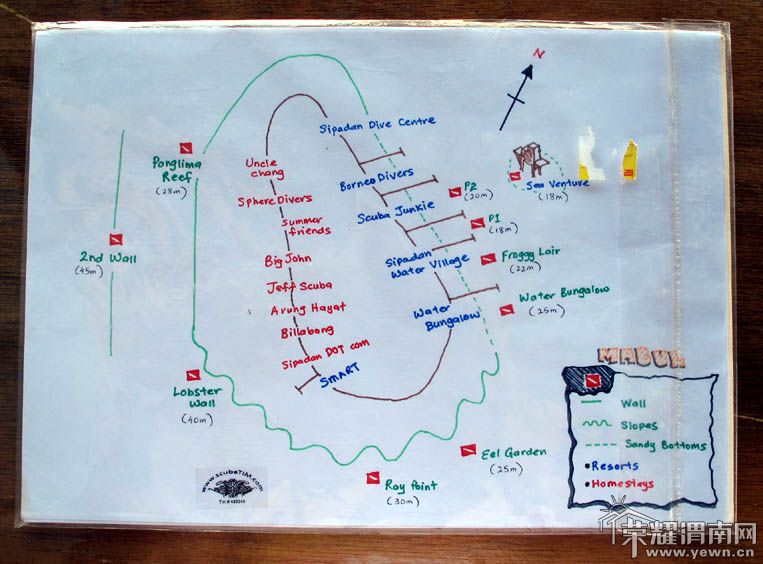 N
Sipadan Dive Centre
Ponglima
Reef
(28m)
Uncle
chang
Borneo Divers
P2
(20m)
Sea Venture
(18m)
Sphere Divers
Scuba Junkie
P1
(18m)
Summer
friends
2nd Wall
(45m)
Big John
Sipadan
Water Village
Froggy Lair
(22m)
Jeff Scuba
Arung Hayat
Water
Bungalow
Water Bungalow
(25m)
Billabong
Sipadan DOT com
SMART
MABUL
Lobster
Wall
(40m)
Wall
Slopes
Sandy Bottoms
Resorts
Homestays
Eel Garden
(25m)
Ray Point
(30m)
www.scubaTIM.com
荣耀渭南网
www.yewn.cn